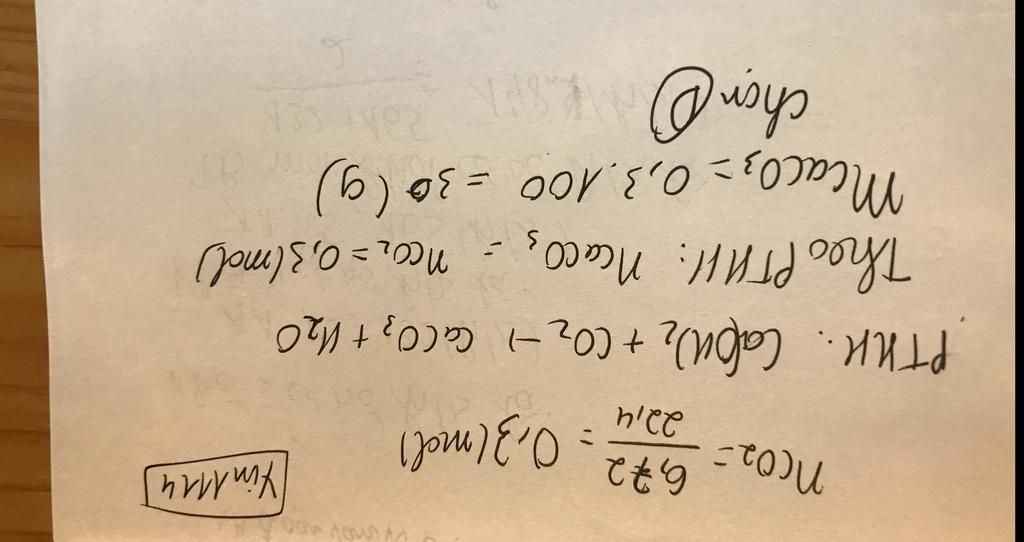 Yin1114
nCO2 = 6,72/22,4 = 0,3 (mol)
PTHH: Ca(OH)2 + CO2 → CaCO3 + H2O
Theo PTHH: nCaCO3 = nCO2 = 0,3 (mol)
mCaCO3 = 0,3.100 = 30 (g)
chọn D